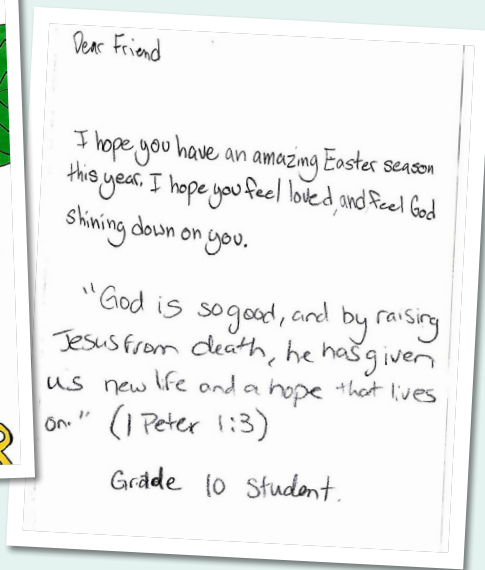 Dear Friend
I hope you have an amazing Easter season
this year. I hope you feel loved, and feel God
shining down on you.
"God is so good, and by raising
Jesus from death, he has given
us new life and a hope that lives
on." (1 Peter 1:3)
Grade 10 Student.
R